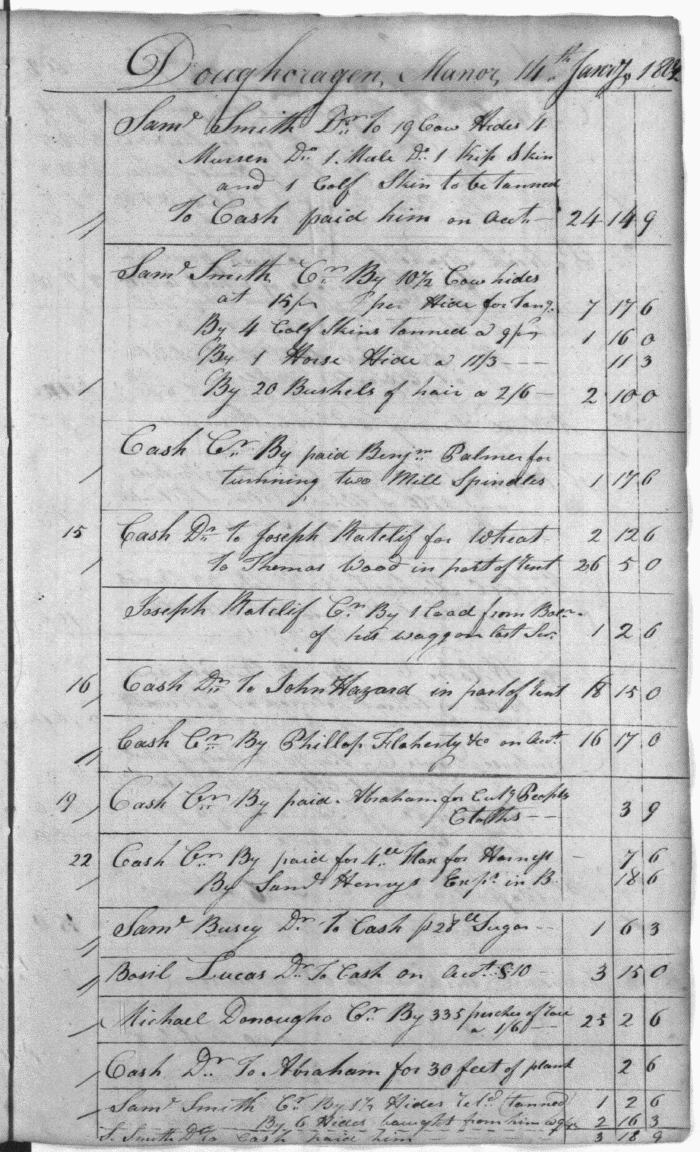 Doughoragen Manor, 14th Janry 180
Samˡ Smith Dr. To 19 Cow Hides 4
Murren Do 1 Mule Do 1 Kip Skin
and 1 Calf Skin to be tanned
To Cash paid him on acct 24 14 9
Samˡ Smith Cr. By 10½ Cow hides
at 15/ per Hide for tang. 7 17 6
By 4 Calf Skins tanned a 9/ 1 16 0
By 1 Horse Hide a 11/3 11 3
By 20 Bushels of hair a 2/6 2 10 0
Cash Cr. By paid Benjn Palmer for
turnning two Mill Spindles 1 17 6
15 Cash Dr. to Joseph Ratclif for Wheat 2 12 6
to Thomas Wood in part of rent 26 5 0
Joseph Ratclif Cr. By 1 load from Balr
of his waggon last 1 2 6
16 Cash Dr. to John Hazard in part of rent 18 15 0
Cash Cr. By Phillop Flaherty &c on acct. 16 17 0
19 Cash Cr. By paid Abraham for Cutg Peoples
Cloaths 3 9
22 Cash Cr. By paid for 4ll Flax for Harness 7 6
By Samˡ Henrys Exps. in B. 18 6
Samˡ Busey Dr. To Cash p 28ll Sugar 1 6 3
Basil Lucas Dr. To Cash on acct. $10 3 15 0
Michael Donougho Cr. By 335 perches of
a 1/6 25 2 6
Cash Dr. To Abraham for 30 feet of plank 2 6
Samˡ Smith Cr. By 1½ Hides tanned 1 2 6
By 6 Hides baught from him 2 16 3
S. Smith Dr. to Cash paid him 3 18 9